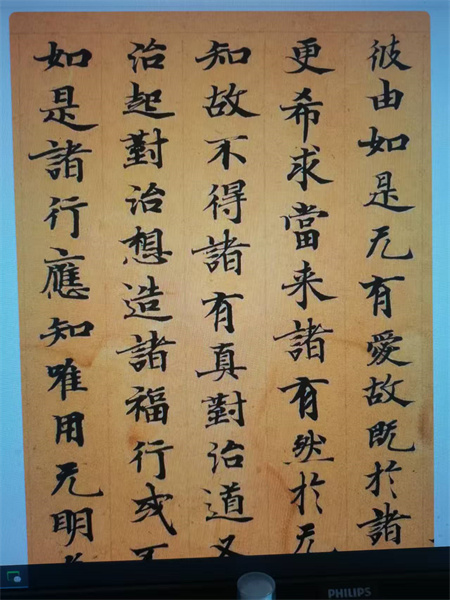 彼由如是无有愛故既於諸
更希求當来諸有然於无
知故不得諸有真對治道又
治起對治想造諸福行或
如是諸行應知唯用无明
PHILIPS